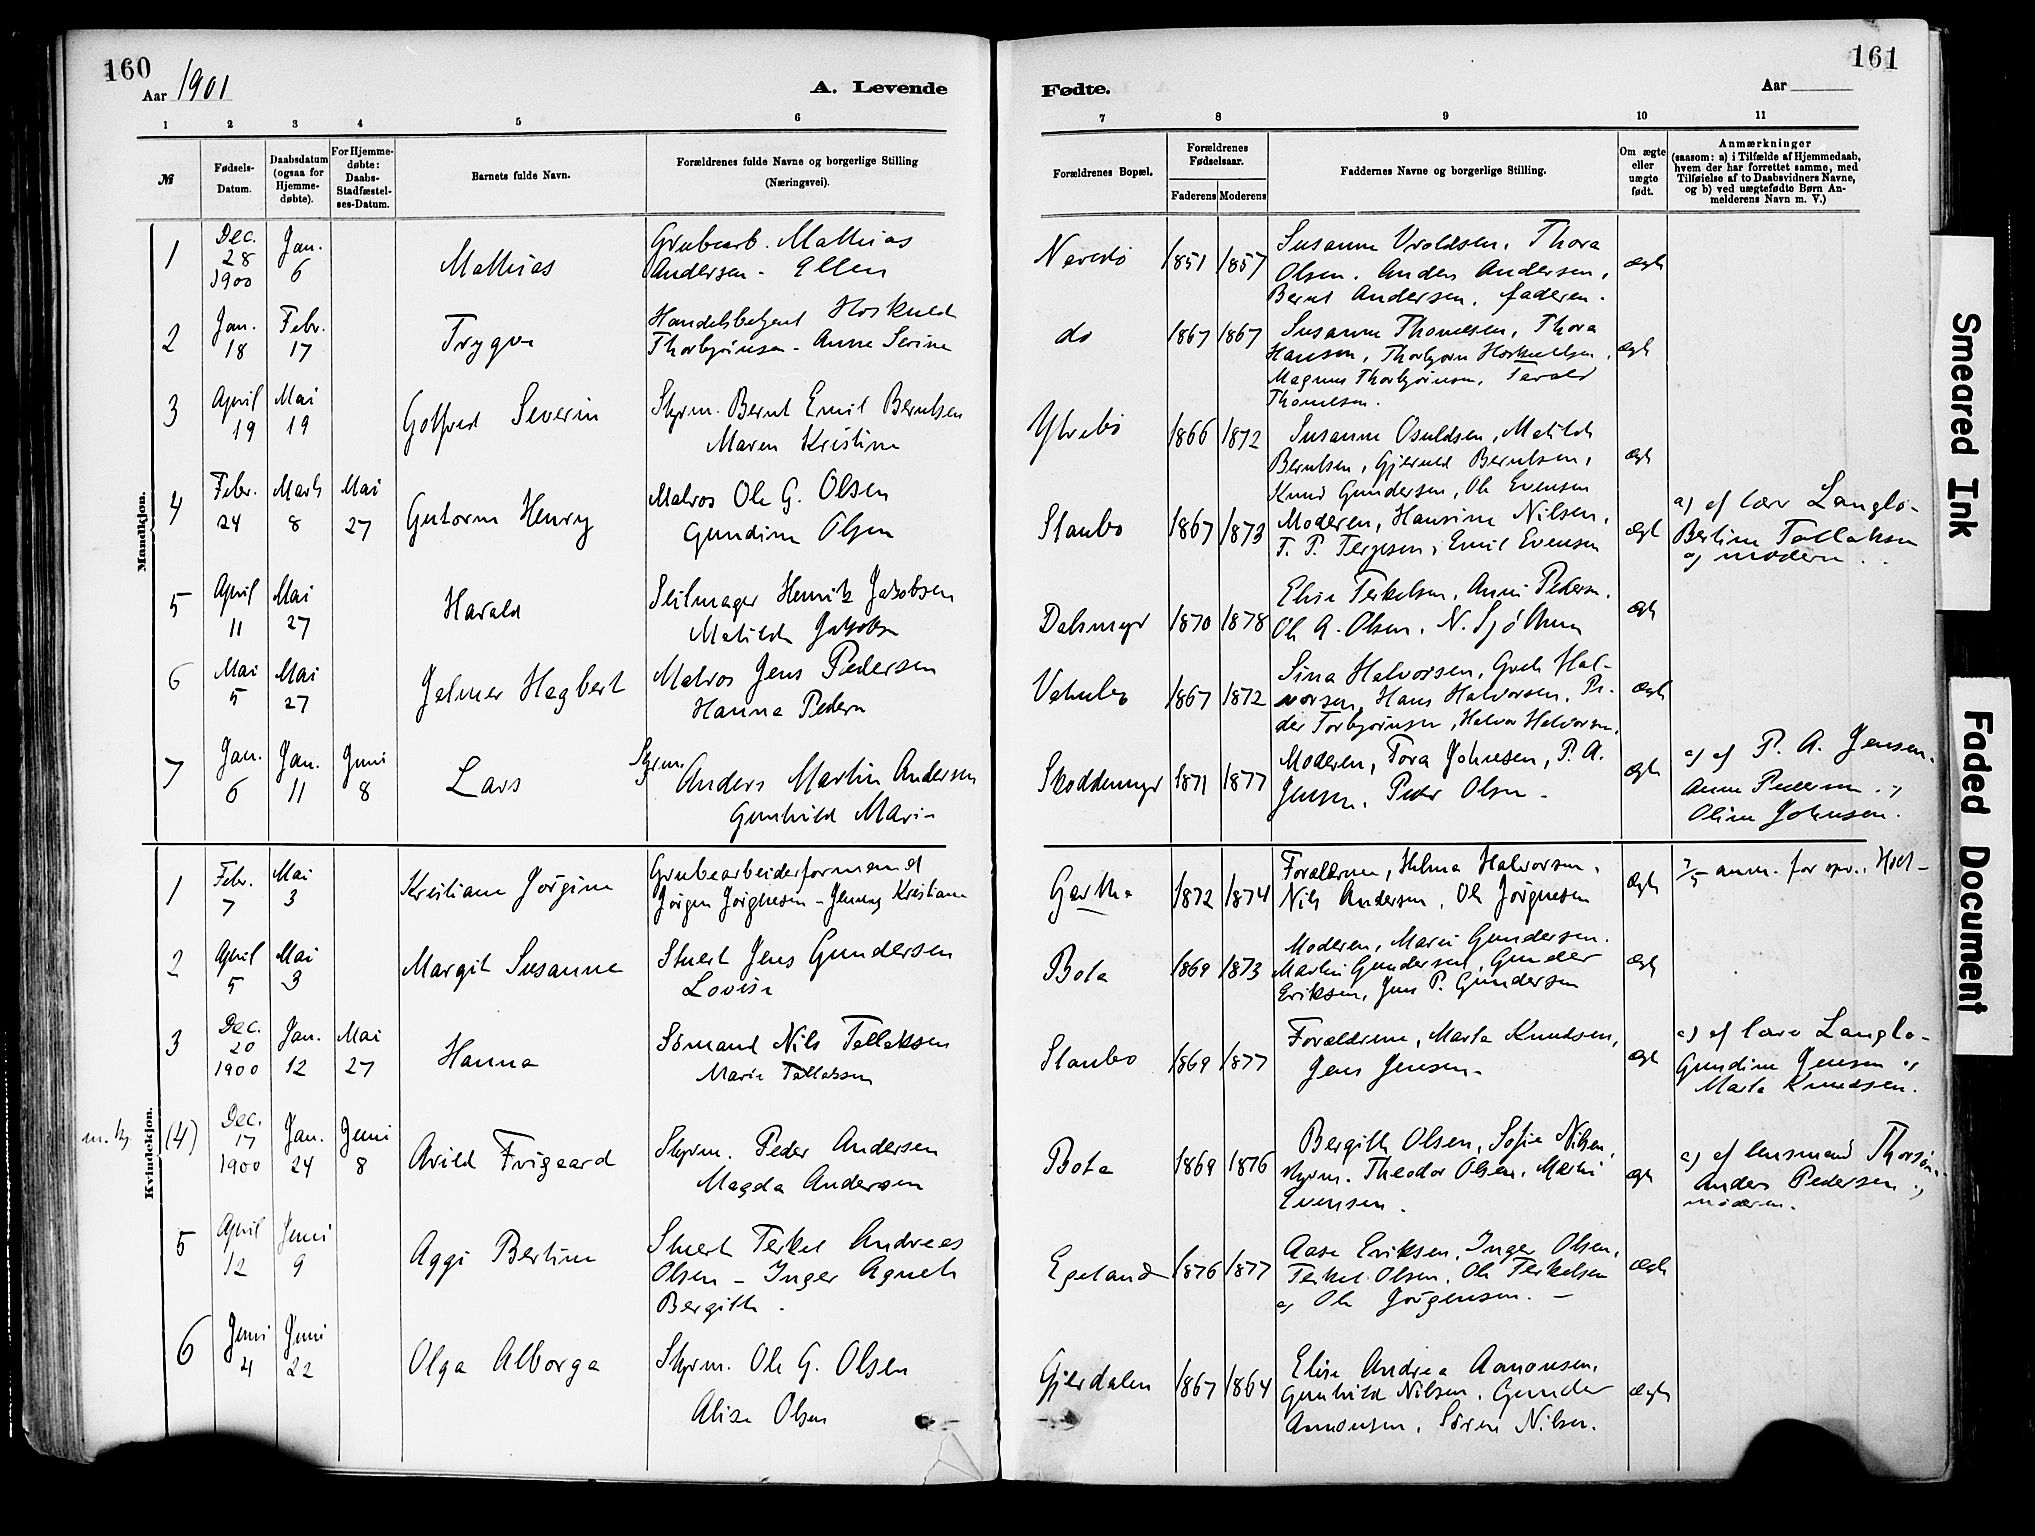 160
Aar 1901
A. Levende
1 2 3 4 5 6
№
Fødsels-
Datum.
Daabsdatum
(ogsaa for
Hjemme-
døbte).
For Hjemme-
døbte:
Daabs-
Stadfæstel-
ses-Datum.
Barnets fulde Navn.
Forældrenes fulde Navne og borgerlige Stilling
(Næringsvei).
Mandkjøn.
1 Dec. 28 1900 Jan. 6 Mathias
Grubearb. Mathias
Andersen - Ellen
2 Jan. 18 Febr. 17 Trygve
Handelsbetjent Hoskuld
Thorbjørnsen - Anne Serine
3 April 19 Mai 19 Gotfred Severin
Styrm. Bernt Emil Berntsen
Maren Kristine
4 Febr. 24 Marts 8 Mai 27 Gutorm Henry
Matros Ole G. Olsen
Gundine Olsen
5 April 11 Mai 27 Harald
Seilmager Henrik Jakobsen
Matilde Jakobsen
6 Mai 5 Mai 27 Jelmer Hagbert
Matros Jens Pedersen
Hanna Pedersen
7 Jan. 6 Jan. 11 Juni 8 Lars
Styrm. Anders Martin Andersen
Gunhild Marie
Kvindekjøn.
1 Febr. 7 Mai 3 Kristiane Jörgine
Grubearbeiderformand
Jörgen Jörgensen - Jenny Kristiane
2 April 5 Mai 3 Margit Susanne
Stuert Jens Gundersen
Lovise
3 Dec. 20 1900 Jan. 12 Mai 27 Hanna
Sömand Nils Tallaksen
Marie Tallaksen
m. kj. (4) Dec. 17 1900 Jan. 24 Juni 8 Arild Frigaard
Styrm. Peder Andersen
Magda Andersen
5 April 12 Juni 9 Aggi Bertine
Stuert Terkel Andreas
Olsen - Inger Agneth
Bergitte.
6 Juni 4 Juni 22 Olga Alborga
Styrm. Ole G. Olsen
Alise Olsen
161
Fødte.
Aar
7 8 9 10 11
Forældrenes Bopæl.
Forældrenes
Fødselsaar.
Faderens Moderens
Faddernes Navne og borgerlige Stilling.
Om ægte
eller
uægte
født.
Anmærkninger
(saasom: a) i Tilfælde af Hjemmedaab,
hvem der har forrettet samme, med
Tilføielse af to Daabsvidners Navne,
og b) ved uægtefødte Børn An-
melderens Navn m. V.)
Naresto 1851 1857
Susanne Uroldsen, Thora
Olsen, Anders Andersen,
Bernt Andersen, faderen.
ægte
do 1867 1867
Susanne Thomesen, Thora
Hansen, Thorbjørn Hoskuldsen,
Magnus Thorbjörnsen, Tarald
Thomesen.
ægte
Ytrebö 1866 1872
Susanne Osuldsen, Matilde
Berntsen, Gjeruld Berntsen,
Knud Gundersen, Ole Evensen
ægte
Staubo 1867 1873
Moderen, Hansine Nilsen,
T. P. Terjesen, Emil Evensen
ægte
a) af lærer Langlo-
Bertine Tallaksen
og moderen.
Dalsmyr 1870 1878
Elise Terkelsen, Anne Pedersen,
Ole A. Olsen, N. Sjöthun
ægte
1867 1872
Sina Halvorsen, Grete Hal-
vorsen, Hans Halvorsen, Pe-
der Torbjörnsen, Halvor Halvorsen.
ægte
Skoddemyr 1871 1877
Moderen, Tora Johnsen, P. A.
Jensen, Peder Olsen -
ægte
a) af P. A. Jensen.
Anne Pedersen og
Oline Johnsen.
Gartha 1872 1874
Forældrene, Helma Halvorsen,
Nils Andersen, Ole Jörgnesen
ægte
Bota 1869 1873
Moderen, Marie Gundersen.
Martin Gundersen, Gunder
Eriksen, Jens P. Gundersen
ægte
Staubo 1869 1877
Forældrene, Marta Knudsen,
Jens Jensen.
ægte
a) af lærer Langlo-
Gundine Jensen og
Marta Knudsen.
Bota 1869 1876
Bergitte Olsen, Sofie Nilsen,
styrm. Theodor Olsen, Martin
Evensen.
ægte
a) af lensmand
Anders Pedersen og
moderen.
Egeland 1876 1877
Aase Eriksen, Inger Olsen,
Terkel Olsen, Ole Terkelsen
og Ole Jörgensen. -
ægte
Gjerdalen 1867 1864
Elise Andrea Aanonsen,
Gunhild Nilsen, Gunder
Aanonsen, Sören Nilsen.
ægte
Smeared Ink
Faded Document